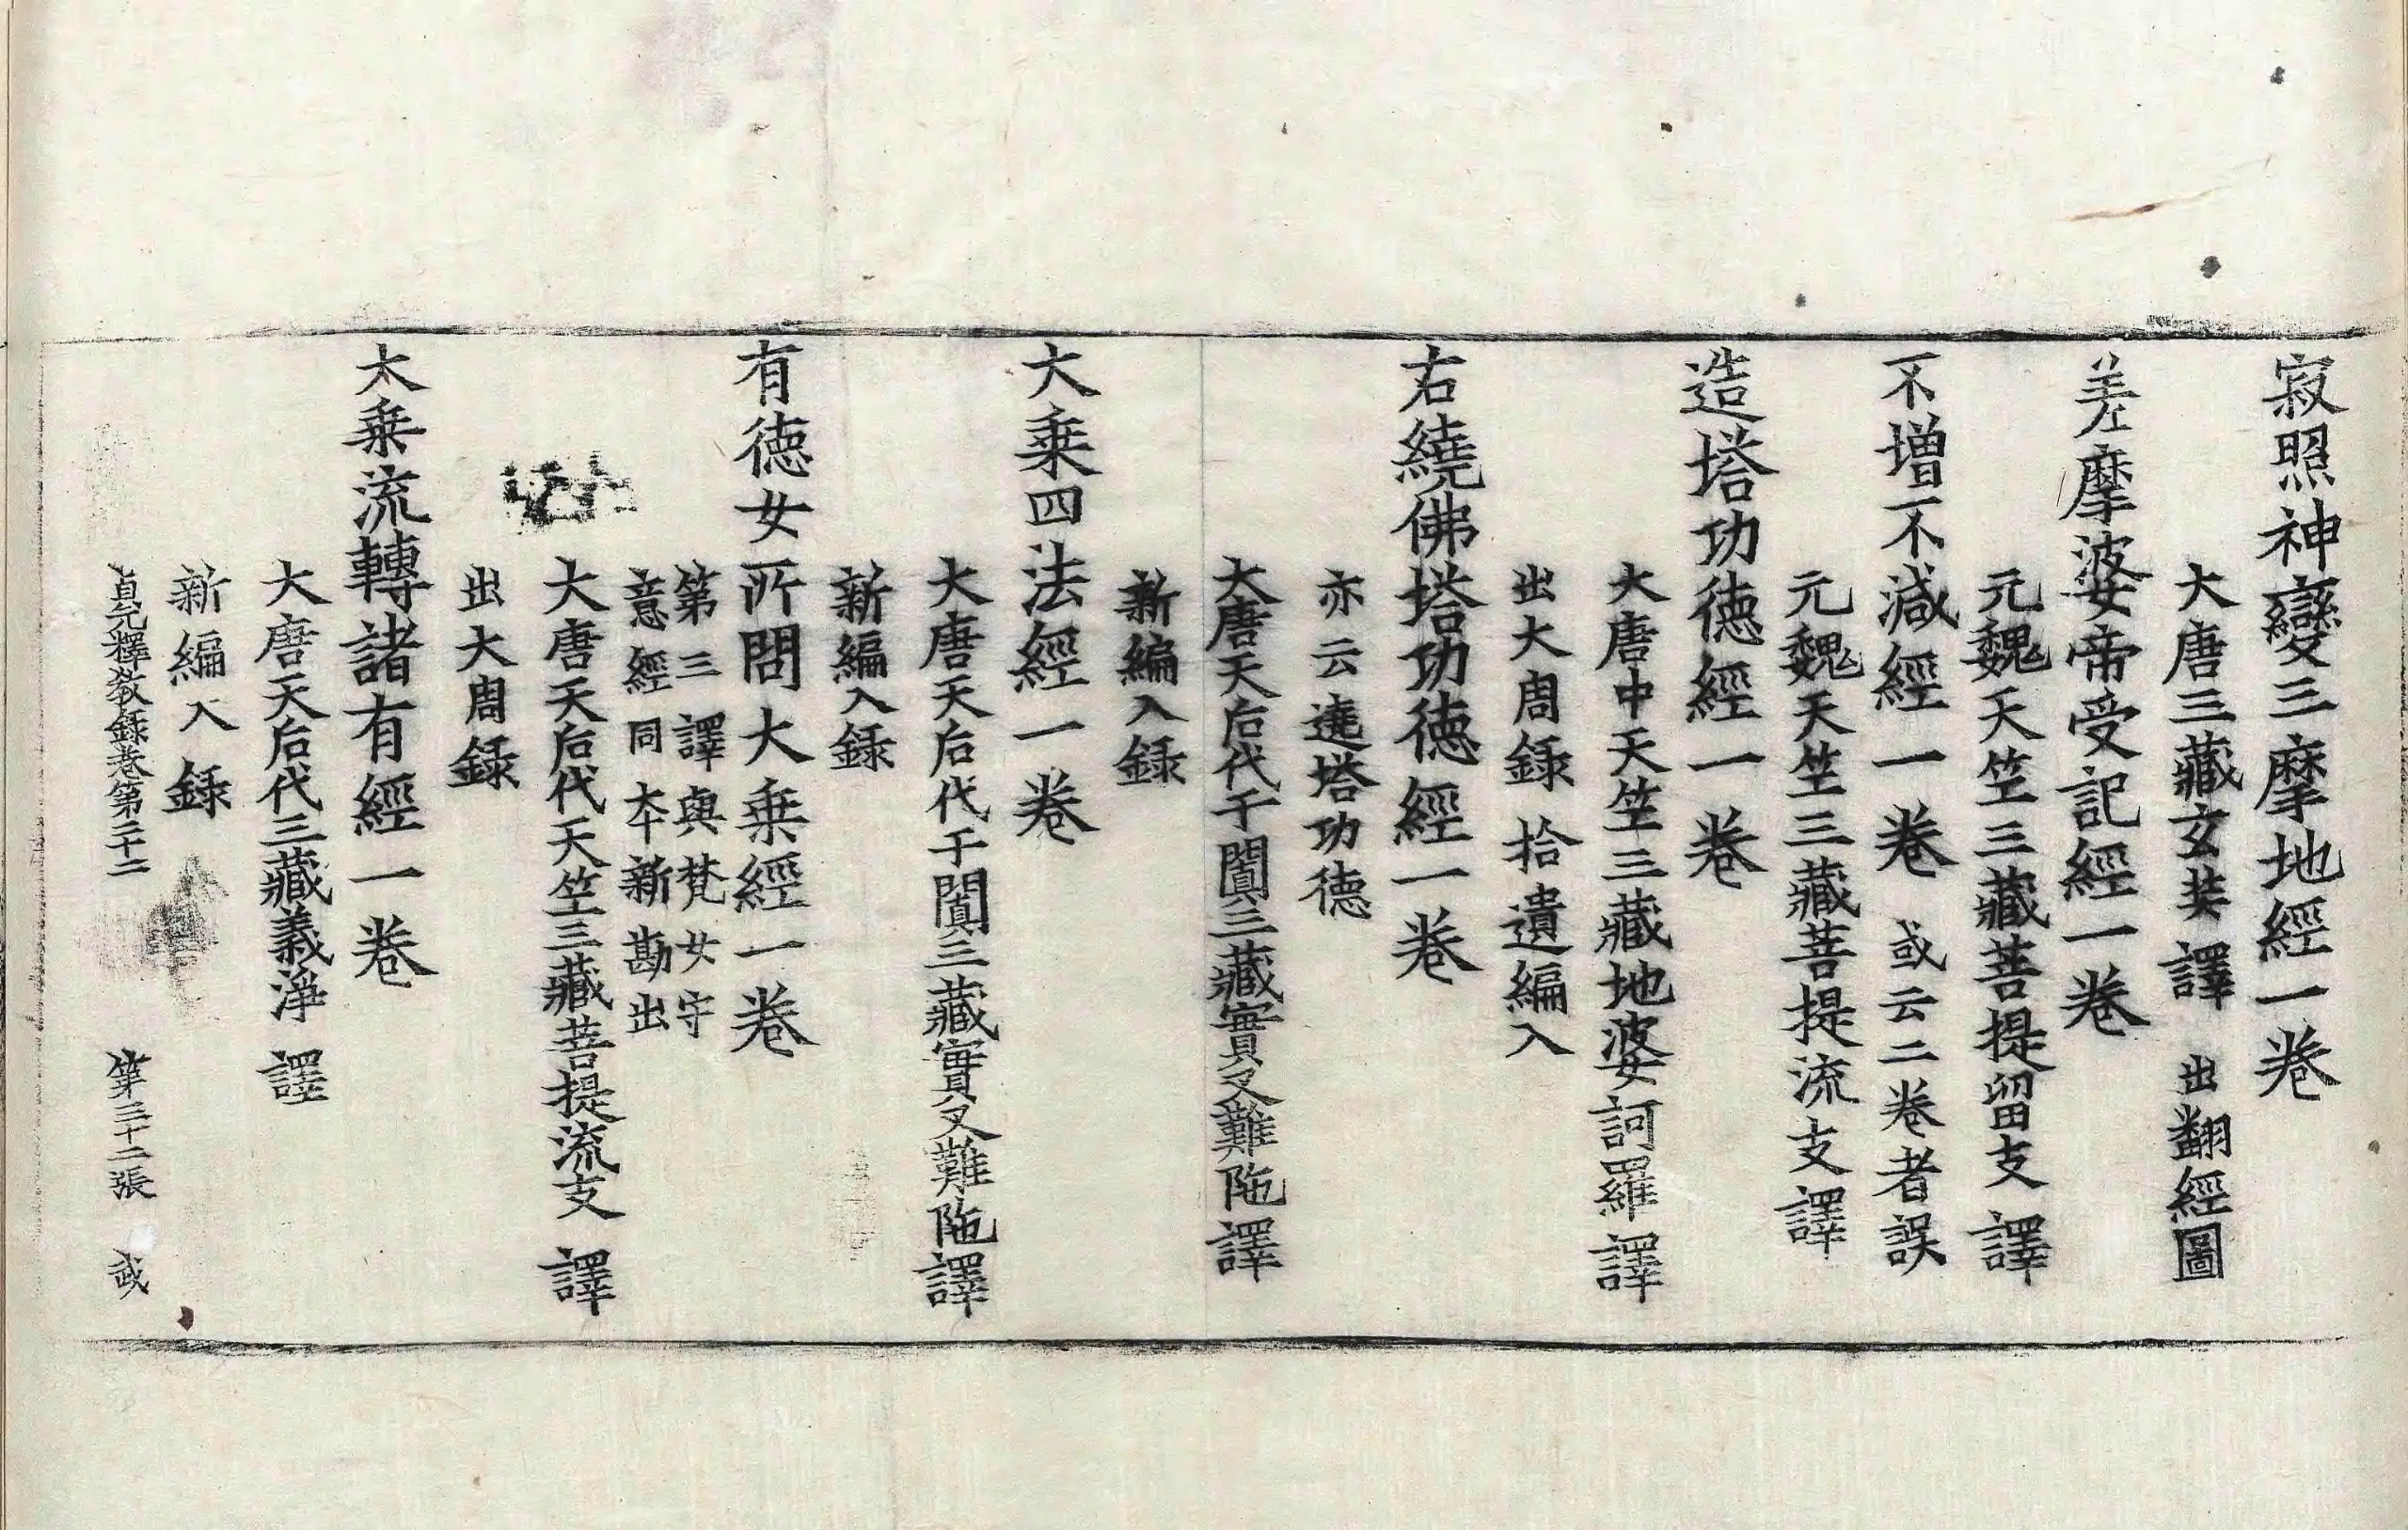 寂照神變三摩地經一卷
大唐三藏玄奘譯 出翻經圖
差摩波女帝受記經一卷
元魏天竺三藏菩提留支譯
不增不減經一卷 或云二卷者誤
元魏天竺三藏菩提流支譯
造塔功德經一卷
大唐中天竺三藏地婆訶羅譯
出大周録拾遺編入
右繞佛塔功德經一卷
亦云遶塔功德
大唐天后代于闐三藏實叉難陁譯
新編入録
大乗四法經一卷
大唐天后代于闐三藏實叉難陁譯
新編入録
有徳女所問大乗經一卷
第三譯與梵女守
意經同本新勘出
大唐天后代天竺三藏菩提流支譯
出大周録
大乗流轉諸有經一卷
大唐天后代三藏義淨譯
新編入録
貞元釋教録卷第二十二 第三十二張